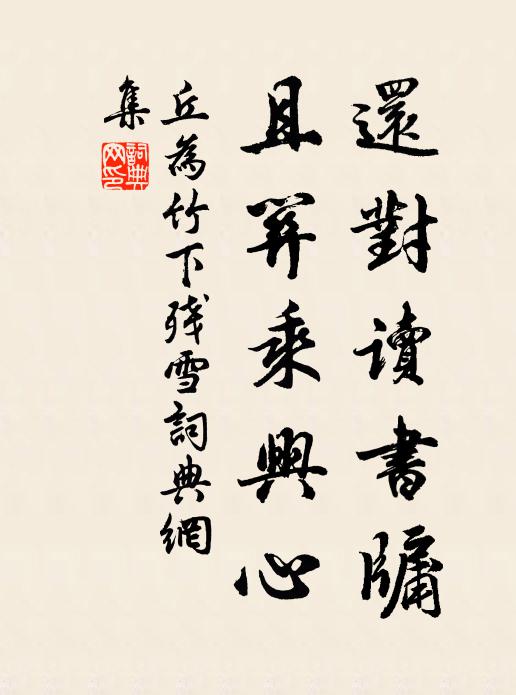 還對讀書牖
且關乘興心
丘為竹下殘雪詞典網
集
詞典
网印